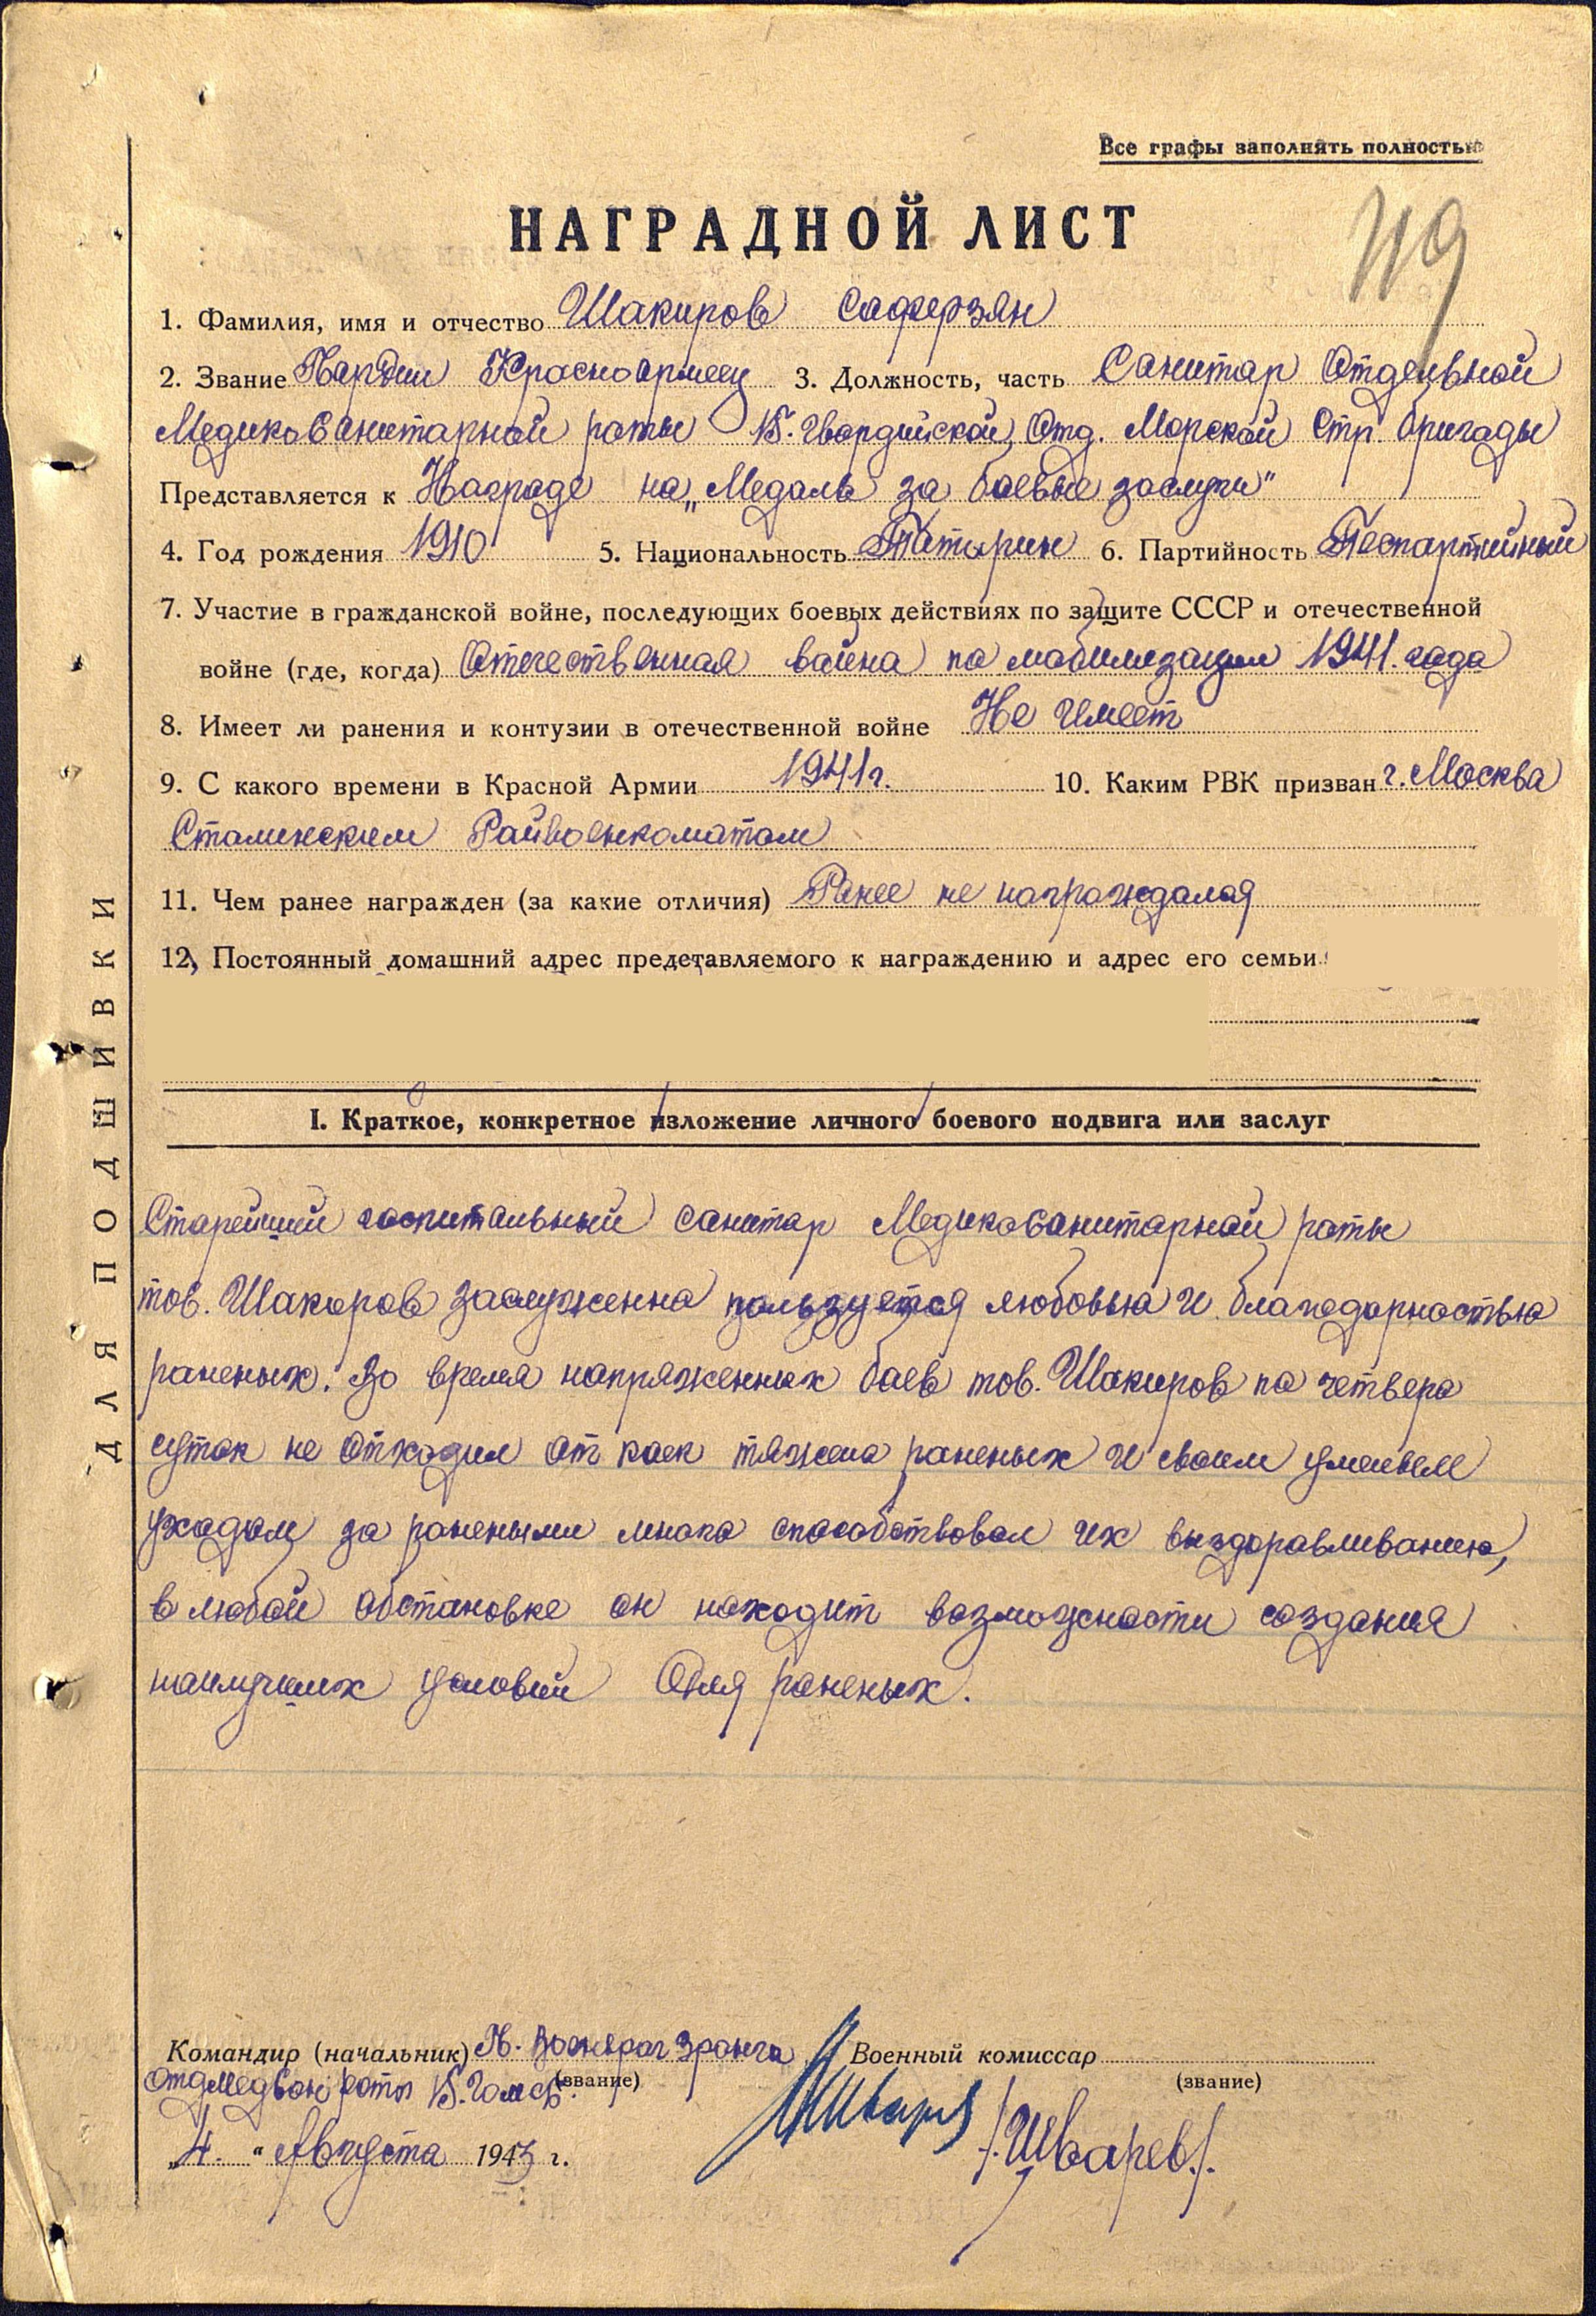 Все графы заполнять полностью
НАГРАДНОЙ ЛИСТ
119
1. Фамилия, имя и отчество Шакиров Саферзян
2. Звание Гвардии Красноармеец 3. Должность, часть Санитар Отдельной
Медикосанитарной роты 15. Гвардийской Отд. Морской Стр. бригады
Представляется к Награде на „Медаль за боевые заслуги"
4. Год рождения 1910 5. Национальность Татарин 6. Партийность Беспартийный
7. Участие в гражданской войне, последующих боевых действиях по защите СССР и отечественной
войне (где, когда) Отечественная война по мобилизации 1941. года
8. Имеет ли ранения и контузии в отечественной войне Не имеет
9. С какого времени в Красной Армии 1941г. 10. Каким РВК призван г. Москва
Сталинским Райвоенкоматом
11. Чем ранее награжден (за какие отличия) Ранее не награждался
12, Постоянный домашний адрес представляемого к награждению и адрес его семьи
I. Краткое, конкретное изложение личного боевого подвига или заслуг
Старейший госпитальный санитар Медикосанитарной роты
тов. Шакиров заслуженна пользуется любовью и благодарностью
раненых. Во время напряженных боев тов. Шакиров по четверо
суток не отходил от коек тяжело раненых и своим умелым
уходом за ранеными много способствовал их выздоравливанию,
в любой обстановке он находит возможности создания
наилучших условий для раненых.
Командир (начальник) Гв. Военврач 3 ранга Военный комиссар
Отд медсан роты (звание) (звание)
Шварев /Шварев/.
„4." Августа 1943 г.
ДЛЯ ПОДШИВКИ